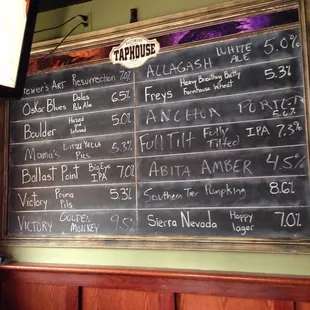 TAPHOUSE
Brewer's Art Resurrection 7.0%
Oskar Blues Dales Pale Ale 6.5%
Boulder Hazed and Infused 5.0%
Mama's Little Yella Pils 5.3%
Ballast Point Big Eye IPA 7.0%
Victory Prima Pils 5.3%
Victory Golden Monkey 9.5%
ALLAGASH WHITE ALE 5.0%
Freys Heavy Breathing Betty Farmhouse Wheat 5.3%
ANCHOR PORTER 5.6%
Full Tilt Fully Tilted IPA 7.3%
ABITA AMBER 4.5%
Southern Tier Pumpking 8.6%
Sierra Nevada Hoppy lager 7.0%